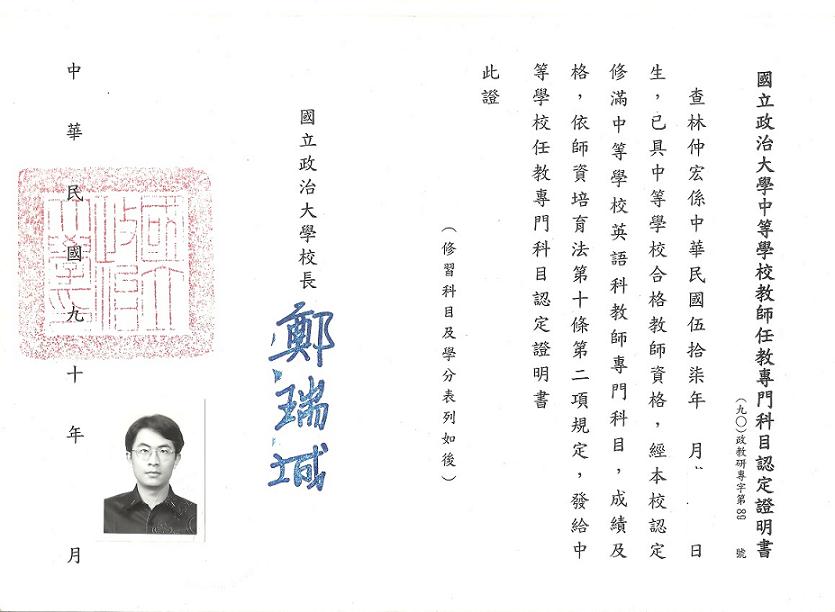 國立政治大學中等學校教師任教專門科目認定證明書
(九〇)政教研專字第89號
查林仲宏係中華民國伍拾柒年 月 日
生，已具中等學校合格教師資格，經本校認定
修滿中等學校英語科教師專門科目，成績及
格，依師資培育法第十條第二項規定，發給中
等學校任教專門科目認定證明書
此證
(修習科目及學分表列如後)
國立政治大學校長
鄭瑞城
中華民國九十年 月
國立政治大學